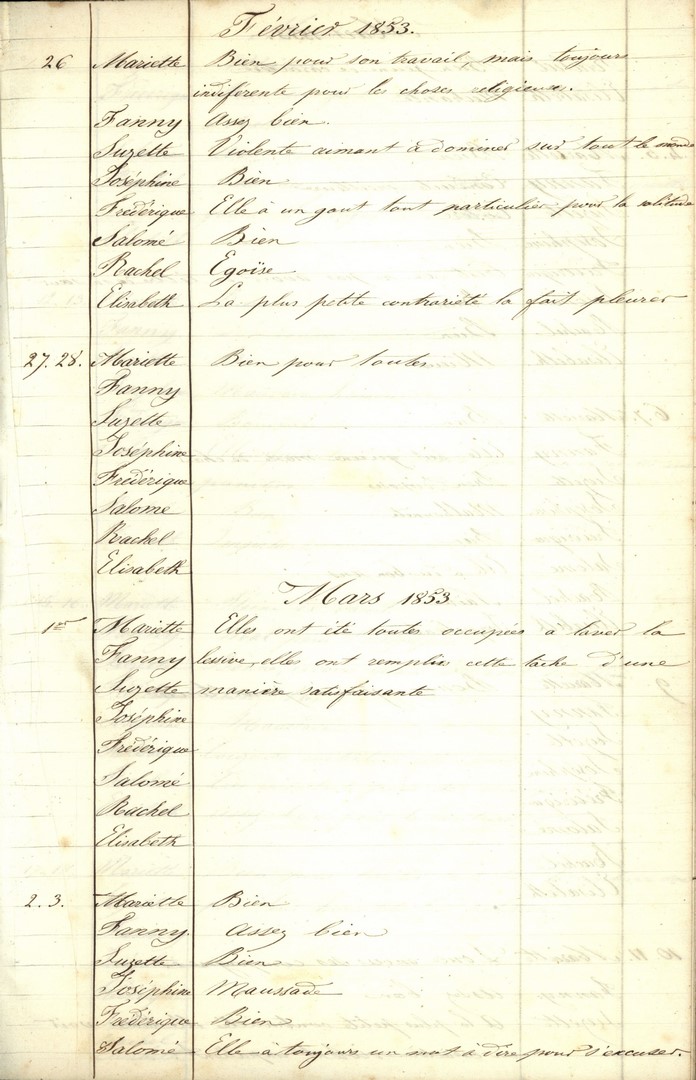 Février 1853.
26 Mariette Bien pour son travail, mais toujours
indiférente pour les choses religieuses.
Fanny Assez bien.
Suzette Violente aimant à dominer sur tout le monde
Joséphine Bien
Frédérique Elle à un gout tout particulier pour la solitude
Salomé Bien
Rachel Egoïse
Elisabeth La plus petite contrariété la fait pleurer
27. 28. Mariette Bien pour toutes
Fanny
Suzette
Joséphine
Frédérique
Salome
Rachel
Elisabeth
Mars 1853
1er Mariette Elles ont été toutes occupées a laver la
Fanny lessive, elles ont remplis cette tache d'une
Suzette manière satisfaisante
Joséphine
Frédérique
Salomé
Rachel
Elisabeth
2. 3. Mariette Bien
Fanny. Assez bien
Suzette Bien
Joséphine Maussade
Frédérique Bien
Salomé Elle à toujours un mot à dire pour s'excuser.